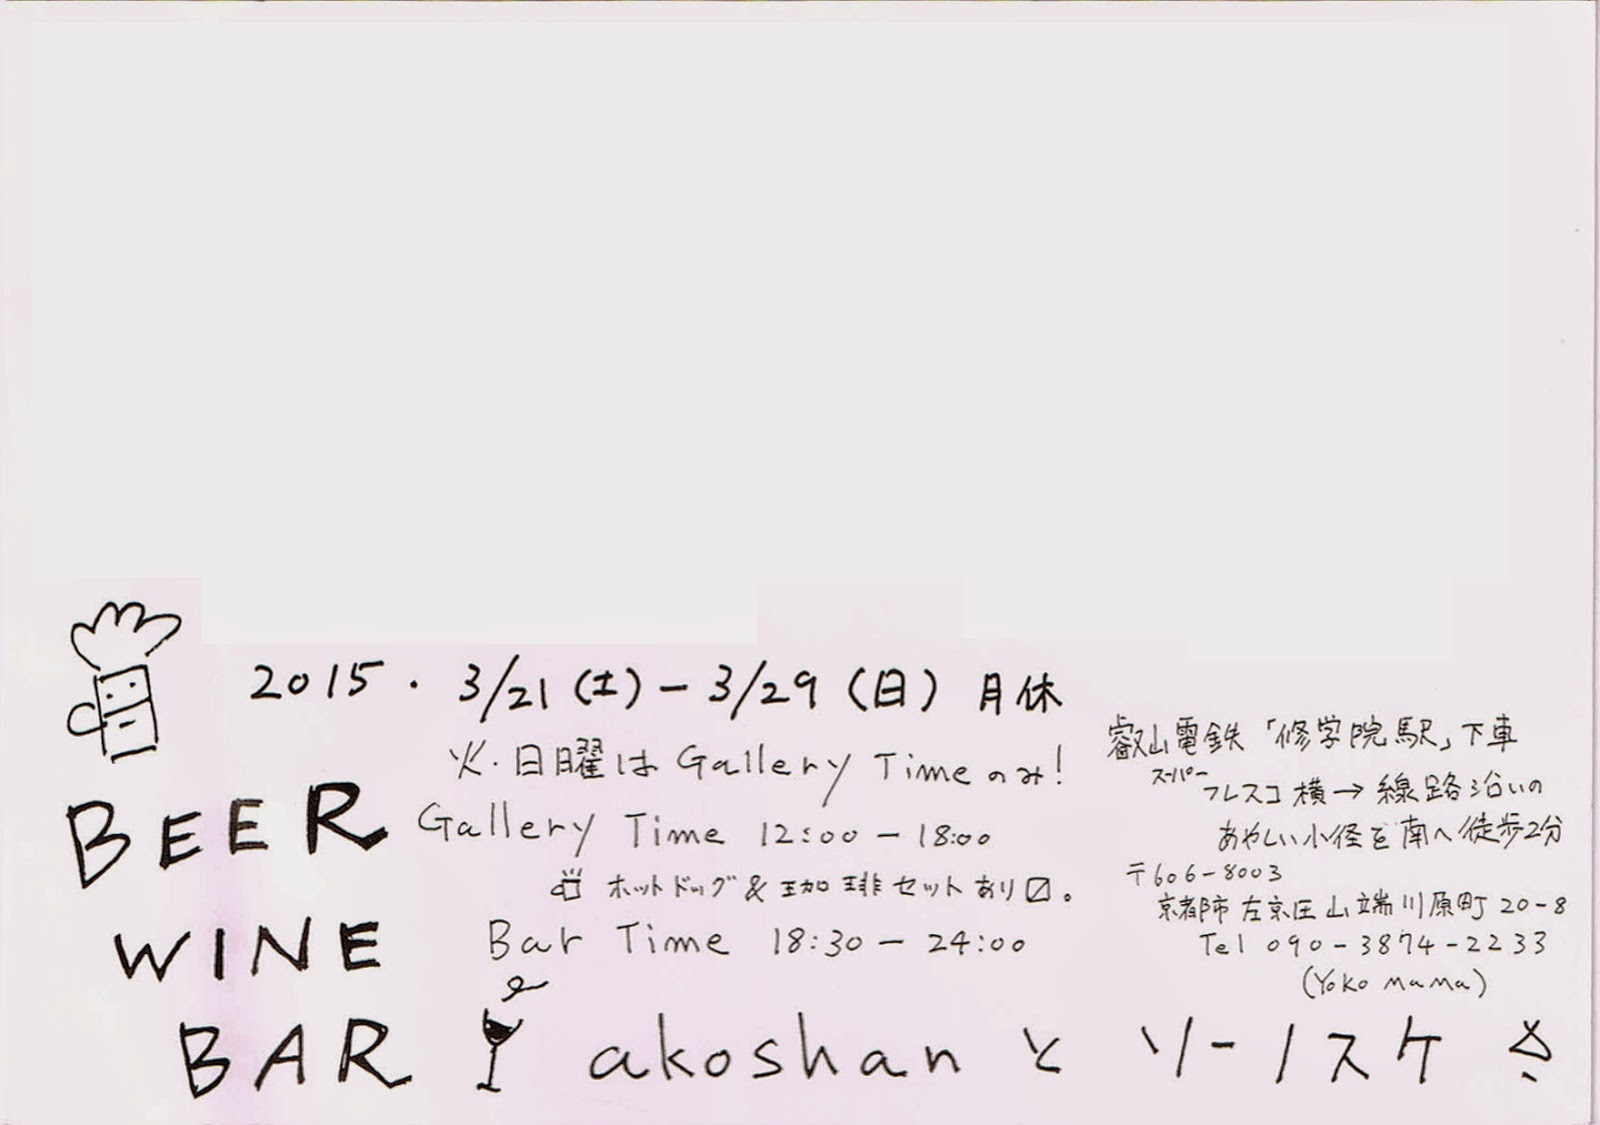 2015. 3/21(土)-3/29(日)月休
火・日曜は Gallery Timeのみ!
Gallery Time 12:00-18:00
ホットドッグ&珈琲セットあり〼。
Bar Time 18:30-24:00
BEER
WINE
BAR
akoshanとソーノスケ
叡山電鉄「修学院駅」下車
スーパー
フレスコ横→線路沿いの
あやしい小径を南へ徒歩2分
〒606-8003
京都市左京区山端川原町20-8
Tel 090-3874-2233
(Yoko mama)